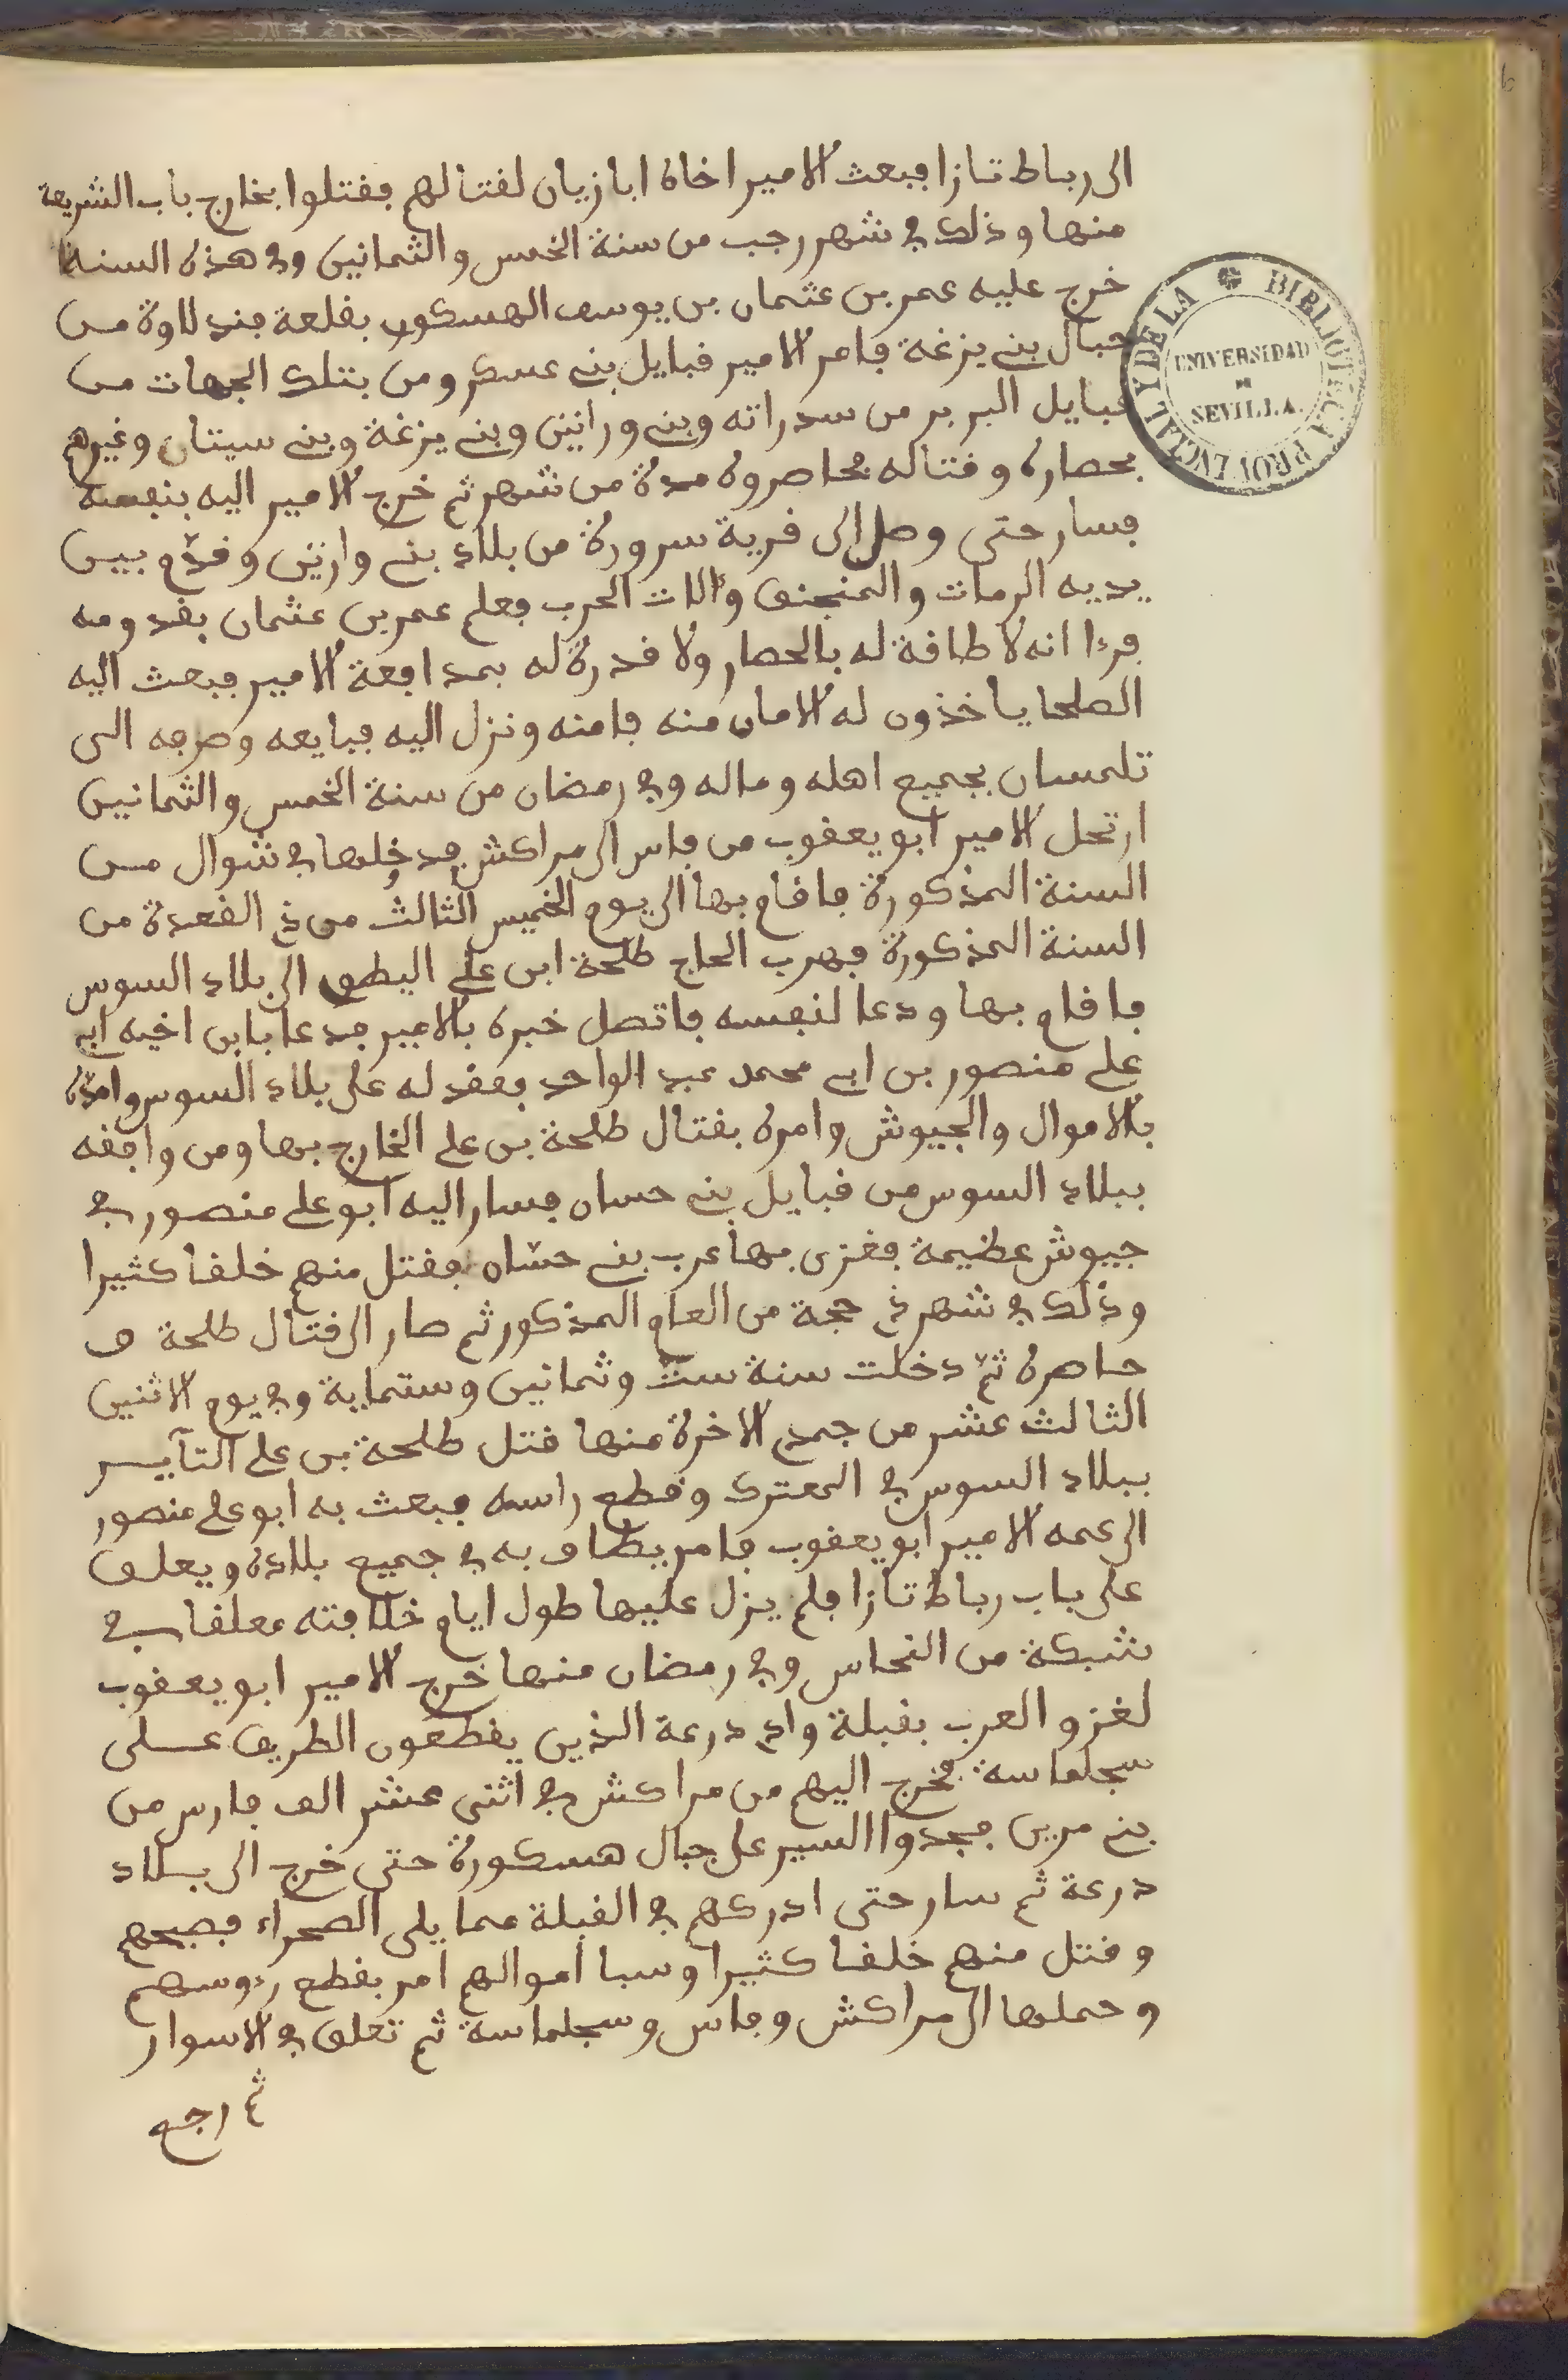 الى رباط تازا فبعث الامير اخاه ابا زيان لقتالهم فقتلوا بخارج باب الشريعة
منها وذلك في شهر رجب من سنة الخمس والثمانين وفي هذه السنة
خرج عليه عمر بن عثمان بن يوسف الهسكوري بقلعة فندلاوة من
جبال بني يزغة فامر الامير قبايل بني عسكر ومن بتلك الجهات من
قبايل البربر من سدراته وبني وراثين وبني يزغة وبني سيتان وغيرهم
بحصاره وقتاله فحاصروه مدة من شهر ثم خرج الامير اليه بنفسه
فسار حتى وصل الى قرية سرورة من بلاد بني وارثين وقدّم بين
يديه الرمات والمنجنق وءالات الحرب فعلم عمر بن عثمان بقدومه
فرءا انه لا طاقة له بالحصار ولا قدرة له بمدافعة الامير فبعث اليه
الصلحا ياخذون له الامان منه فامنه ونزل اليه فبايعه وصرفه الى
تلمسان بجميع اهله وماله وفي رمضان من سنة الخمس والثمانين
ارتحل الامير ابو يعقوب من فاس الى مراكش فدخلها في شوال من
السنة المذكورة فاقام بها الى يوم الخميس الثالث من ذي القعدة من
السنة المذكورة فهرب الحاج طلحة ابن علي البطوي الى بلاد السوس
فاقام بها ودعا لنفسه فاتصل خبره بالامير فدعا بابن اخيه ابي
علي منصور بن ابي محمد عبد الواحد فعقد له على بلاد السوس وامدّه
بالاموال والجيوش وامره بقتال طلحة بن علي الخارج بها ومن وافقه
ببلاد السوس من قبايل بني حسان فسار اليه ابو علي منصور في
جيوش عظيمة فغزى بها عرب بني حسّان فقتل منهم خلقا كثيرا
وذلك في شهر ذي حجة من العام المذكور ثم صار الى قتال طلحة و
حاصره ثمّ دخلت سنة ستّ وثمانين وستماية وفي يوم الاثنين
الثالث عشر من جمدى الاخرة منها قتل طلحة بن علي التآيـر
ببلاد السوس في المعترك وقطع راسه فبعث به ابو علي منصور
الى عمه الامير ابو يعقوب فامر يطاف به في جميع بلاده ويعلق
على باب رباط تازا فلم يزل عليها طول ايام خلافته معلقا في
شبكة من النحاس وفي رمضان منها خرج الامير ابو يعقوب
لغزو العرب بقبلة وادي درعة الذين يقطعون الطريق على
سجلماسة فخرج اليهم من مراكش في اثنى عشر الف فارس من
بني مرين فجدوا السير على جبال هسكورة حتى خرج الى بلاد
درعة ثم سار حتى ادركهم في القبلة مما يلي الصحراء فصبحهم
وقتل منهم خلقا كثيرا وسبا اموالهم امر بقطع رءوسهم
وحملها الى مراكش وفاس وسجلماسة ثم تعلق في الاسوار
ثم رجع
BIBLIOTECA PROVINCIAL Y DE LA
UNIVERSIDAD
DE
SEVILLA.